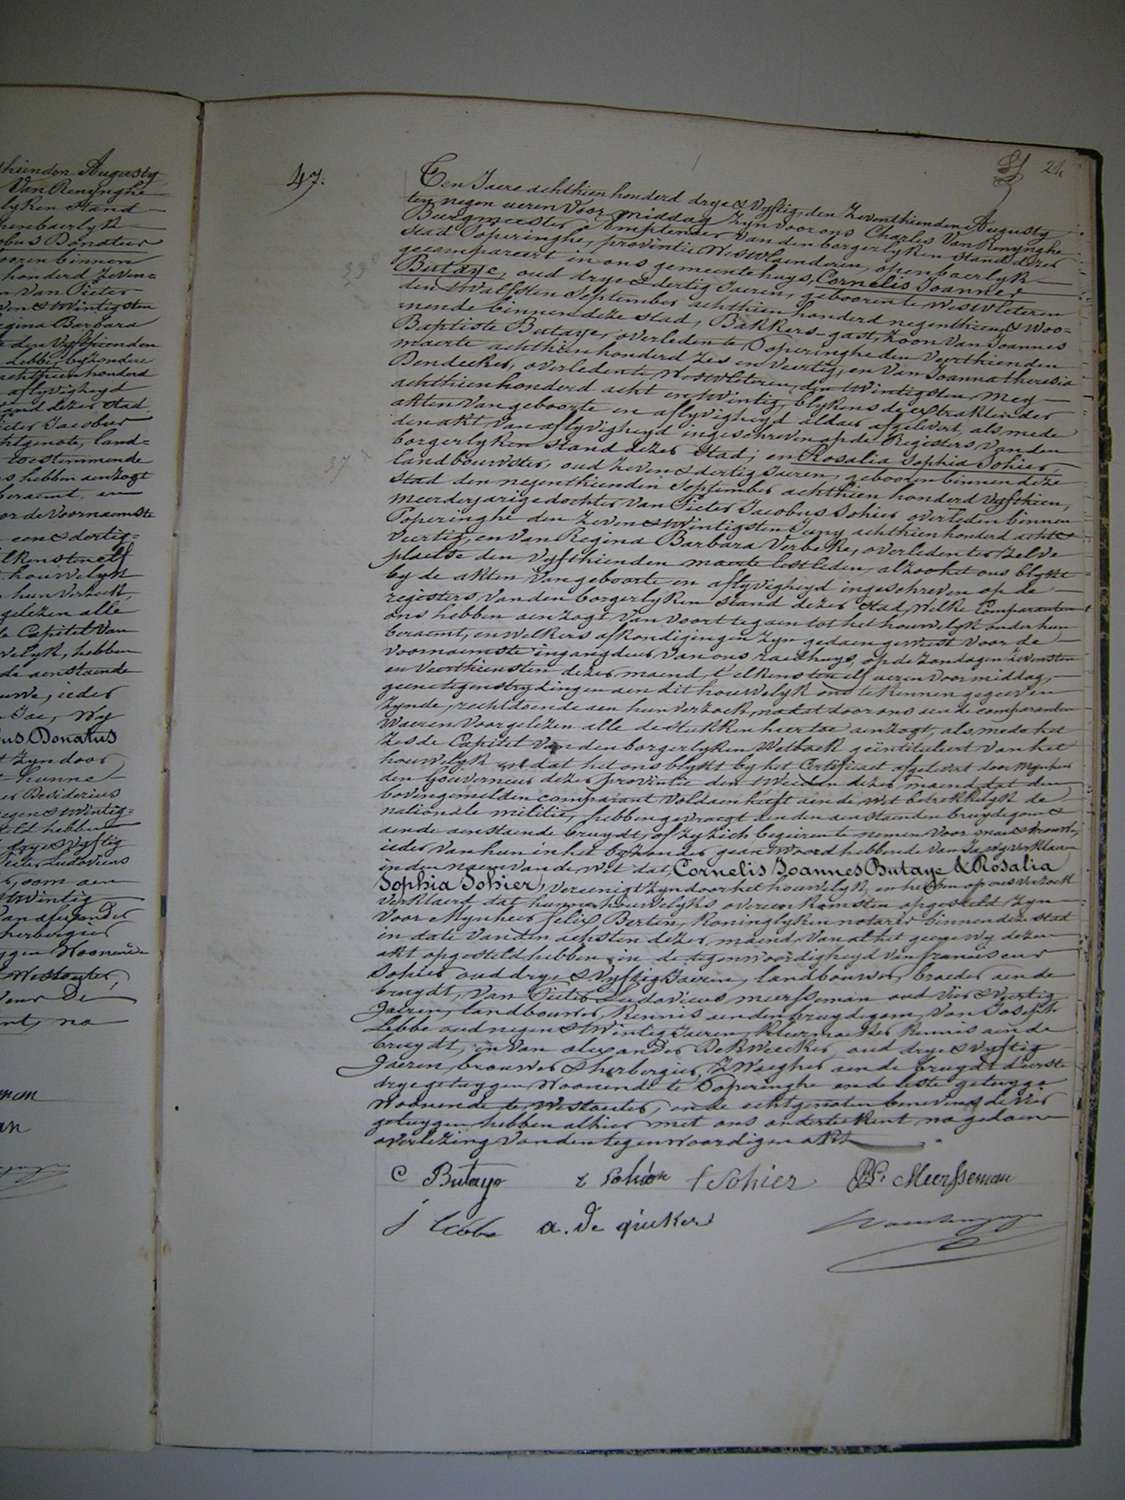 thienden Augusty
Van Renynghe
lyken Stand
openbaerlyk
obus Donatus
booren binnen
honderd Zeven=
n Van Pieter
en & Wintigsten
egina Barbara
den Vyfthienden
Lebbe, byzondere
achthienhonderd
aflyvigheyd
Stand dezer Stad
ieder Jacobus
htgenote, land=
toestemmende
s hebben aenzogt
beraemt, en
or de Voornaemste
een & dertig=
houwelyk
hun Verzoek,
gelezen alle
de Capitel Van
welyk, hebben
de aenstaende
uwe, ieder
Jae, Wy
us Donatus
t Zyn door
hunne
Desiderius
negen & Wintig=
steld hebben
drye & Vyftig
Pieter Ludovicus
som aen
Wintig
Van alexander
herbergier
gen Woonende
Westouter,
Vour De
ent, na
man
an
24
47.
Ten Jaere achthien honderd drye & Vyftig, den Zeventhienden Augusty
ten negen ueren Voor middag Zyn Voor ons Charles Van Renynghe
Burgmeester Amptenaer Van den borgerlyken Stand dezer
Stad Poperinghe, provintie WestVlaenderen, openbaerlyk
gecompareert in ons gemeente huys, Cornelis Joannes
Butaye, oud drye & dertig Jaeren, gebooren te WestVleteren
den twalfsten September achthien honderd negenthien, & Woo=
nende binnen deze Stad, Bakkers gast, Zoon Van Joannes
Baptiste Butaye, overleden te Poperinghe den Veerthienden
maerte achthien honderd Zes en Veertig, en Van Joanna theresia
Dendecker, overleden te WestVleteren, den twintigsten Mey
achthienhonderd acht en twintig, blykens de extrakten der
akten Van geboorte en aflyvigheyd aldaer afgelevert, als mede
den akt Van aflyvigheyd ingeschreven op de Registers Van den
borgerlyken Stand dezer Stad; en Rosalia Sophia Sohier,
landbouwster, oud Zeven & dertig Jaeren, gebooren binnen deze
Stad den negenthienden September achthien honderd Vyfthien,
meerderjarige dochter Van Pieter Jacobus Sohier overleden binnen
Poperinghe den Zeven & Wintigsten Juny achthien honderd acht &
Veertig, en Van Regina Barbara Verbeke, overleden ter Zelve
plaetse den Vyfthienden maerte lestleden, alzoo het ons blykt
by de akten Van geboorte en aflyvigheyd ingeschreven op de
registers Van den borgerlyken Stand dezer Stad, Welke Comparanten
ons hebben aenzogt Van Voort te gaen tot het houwelyk onder hun
beraemt, en Welkers afkondigingen Zyn gedaen geweest Voor de
Voornaemste ingangdeur Van ons raedhuys, op de Zondagen Zevensten
en Veerthiensten dezer maend, t'elkens ten elf ueren Voor middag,
geene tegenstrydingen aen dit houwelyk ons te kennen gegeven
Zynde, rechtdoende aen hun Verzoek, na dat door ons aen de Comparanten
Waeren Voorgelezen alle de stukken hier toe aenzogt, als mede het
Zesde Capitel Van den borgerlyken Wetboek geïntituleert Van het
houwelyk en dat het ons blykt by het Certificaet afgelevert door Mynheer
den Gouverneur dezer provintie den tweeden dezer maend, dat den
bovengemelden comparant Voldaen heeft aen de Wet betrekkelyk de
nationale militie, hebben gevraegt aen den aenstaenden bruydegom &
aen de aenstaende bruydt, of Zy Zich begeiren te nemen Voor man & Vrouw
ieder Van hun in het byzonder geantWoord hebbende Van Ja, Wy Verklaren
in den naem Van de Wet dat, Cornelis Joannes Butaye & Rosalia
Sophia Sohier, Vereenigt Zyn door het houwelyk, en hebben op ons Verzoek
Verklaert dat hunne houwelyks overeenkomsten opgesteld Zyn
Voor Mynheer felix Berten, Koninglyken notaris binnen deze stad
in date Van den achsten dezer maend. Van al het gene Wy dezen
akt opgesteld hebben in de tegenwoordigheyd Van franciscus
Sohier oud drye & Vyftig Jaeren, landbouwer, broeder aen de
bruydt, Van Pieter Ludovicus meersseman oud Vier & Veertig
Jaeren, landbouwer, Kennis aen den bruydegom, Van Joseph
Lebbe oud negen & twintig Jaeren, Kleermaeker Kennis aen de
bruydt, en Van alexander DeKWeeker, oud drye & Vyftig
Jaeren, brouwer & herbergier, ZWaegher aen de bruydt d'eerste
drye getuygen Woonende te Poperinghe en de leste getuyge
Woonende te Westouter, en de echtgenoten benevens de Vier
getuygen hebben alhier met ons onderteekent na gedaene
overlezing Van den tegenwoordigen akt.
C Butaye r sohier f Sohier PL. Meersseman
j lebbe a. De quéker